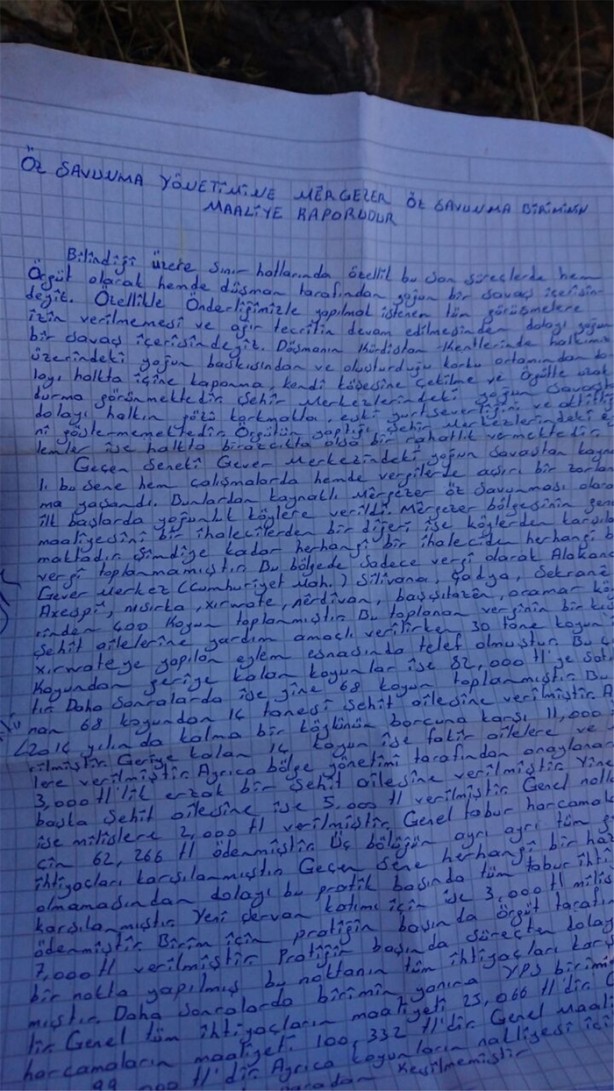 ÖZ SAVUNMA YÖNETİMİNE MÊRGEZER ÖZ SAVUNMA BİRİMİNİN
MAALİYE RAPORUDUR
Bilindiği üzere sınır hatlarında özellil bu son süreçlerde hem
Örgüt olarak hemde düşman tarafından yoğun bir savaş içerisin-
deyiz. Özellikle Önderliğimizle yapılmak istenen tüm görüşmelere
izin verilmemesi ve ağır tecritin devam edilmesinden dolayı yoğun
bir savaş içerisindeyiz. Düşmanın Kürdistan Kentlerinde halkımız
üzerindeki yoğun baskısından ve oluşturduğu korku ortamından do
layı halkta içine kapanma, kendi köşesine çekilme ve Örgütte uzak
durma görünmektedir. Şehir Merkezlerindeki yoğun Savaştan
dolayı halkın gözü korkmakta, eski yurtseverliğini ve
ni göstermemektedir. Örgütün yaptığı Şehir Merkezlerindeki e
lemler ise halkta birazcıkta olsa bir rahatlık vermektedir.
Geçen Seneki Gever Merkezindeki yoğun Savaştan kayna
lı bu sene hem çalışmalarda hemde vergilerde aşırı bir zorlan
ma yaşandı. Bunlardan kaynaklı Mêrgezer öz Savunması olara
ilk başlarda yoğunluk köylere verildi. Mêrgezer bölgesinin gene
maaliyesini bir ihalecilerden bir diğeri ise köylerden karşıla
maktadır. Şimdiye kadar herhangi bir ihaleciden herhangi b
vergi toplanmamıştır. Bu bölgede Sadece vergi olarak Alakan
Gever Merkez (Cumhuriyet Mah.) Silivana, Sekrane
Axespi, mısırka, xırwate, pêrdivan, oramar kö
rinden 400 Koyun toplanmıştır. Bu toplanan verginin bir kı
Şehit ailelerine yardım amaçlı verilirken 30 tane koyun
xırwateye yapılan eylem esnasında telef olmuştur. Bu
Koyundan geriye kalan koyunlar ise 82,000 tl'ye Satıl
tır. Daha Sonralarda ise yine 68 koyun toplanmıştır. Bu
nan 68 koyundan 14 tanesi Şehit ailesine verilmiştir. A
2014 yılında kalma bir köylünün borcuna karşı 11,000
rilmiştir. Geriye kalan 14 koyun ise fakir ailelere ve
lere verilmiştir. Ayrıca bölge yönetimi tarafından onaylanan
3,000 tl'lik erzak bir Şehit ailesine verilmiştir. Yine
başka Şehit ailesine ise 5.000 tl verilmiştir. Genel
ise milislere 2,000 tl verilmiştir. Genel tabur harcamala
çin 62,266 tl ödenmiştir. Üç bölüğün ayrı ayrı tüm
ihtiyaçları karşılanmıştır. Geçen Sene herhangi bir ha
olmamasından dolayı bu pratik başında tüm tabur ihti
karşılanmıştır. Yeni şervan katımı için ise 3,000 tl milis
ödenmiştir. Birim için pratiğin başında örgüt tarafı
7,000 tl verilmiştir. Pratiğin başında süreçten dolay
bir nokta yapılmış bu noktanın tüm ihtiyaçları karşı
mıştır. Daha Sonralarda birimin yanına YPS birimi
tir. Genel tüm ihtiyaçların maaliyeti 25,066 tl'dir.
harcamaların maaliyeti 100,332 tl'dir. Genel Maali
tl'dir. Ayrıca koyunların nakliyesi içi
paradan Kesilmemiştir